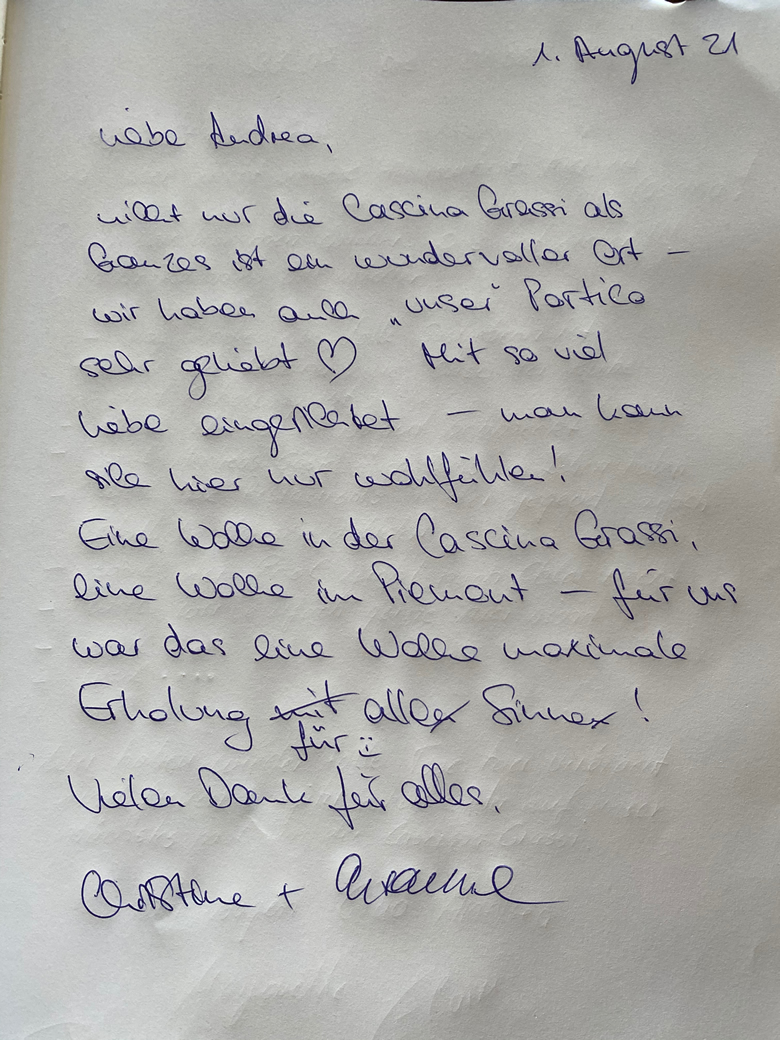 1. August 21
Liebe Andrea,
nicht nur die Cascina Grassi als
Ganzes ist ein wundervoller Ort –
wir haben auch „unser“ Portico
sehr geliebt ♡ Mit so viel
Liebe eingerichtet – man kann
sich hier nur wohlfühlen!
Eine Woche in der Cascina Grassi,
eine Woche im Piemont – für uns
war das eine Woche maximale
Erholung mit aller Sinne!
für :)
Vielen Dank für alles.
Christiane +